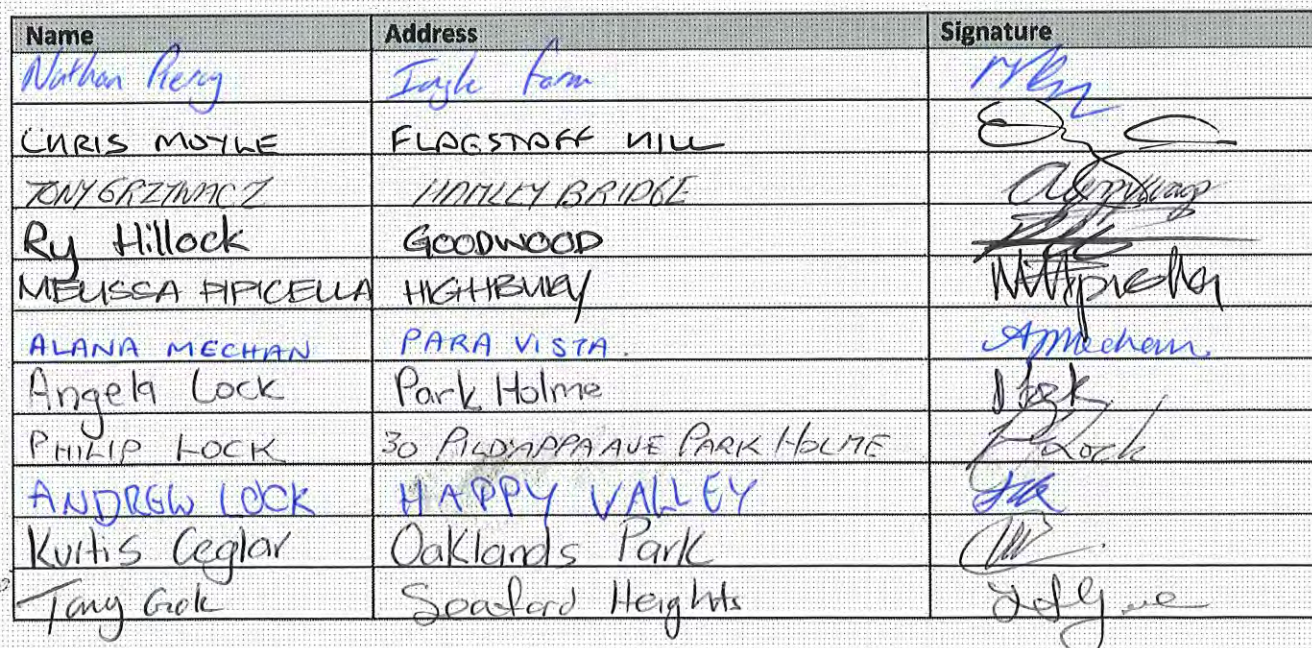 Name Address Signature
Nathan Ingle Farm
CHRIS MOYLE FLAGSTAFF HILL
TONY GRZYWACZ HAMLEY BRIDGE
Ry Hillock GOODWOOD
MELISSA PIPICELLA HIGHBURY
ALANA MECHAN PARA VISTA. Apmechan
Angela Lock Park Holme Lock
PHILIP LOCK 30 PILDAPPA AVE PARK HOLME PLock
ANDREW LOCK HAPPY VALLEY
Kurtis Ceglar Oaklands Park
Tony Seaford Heights